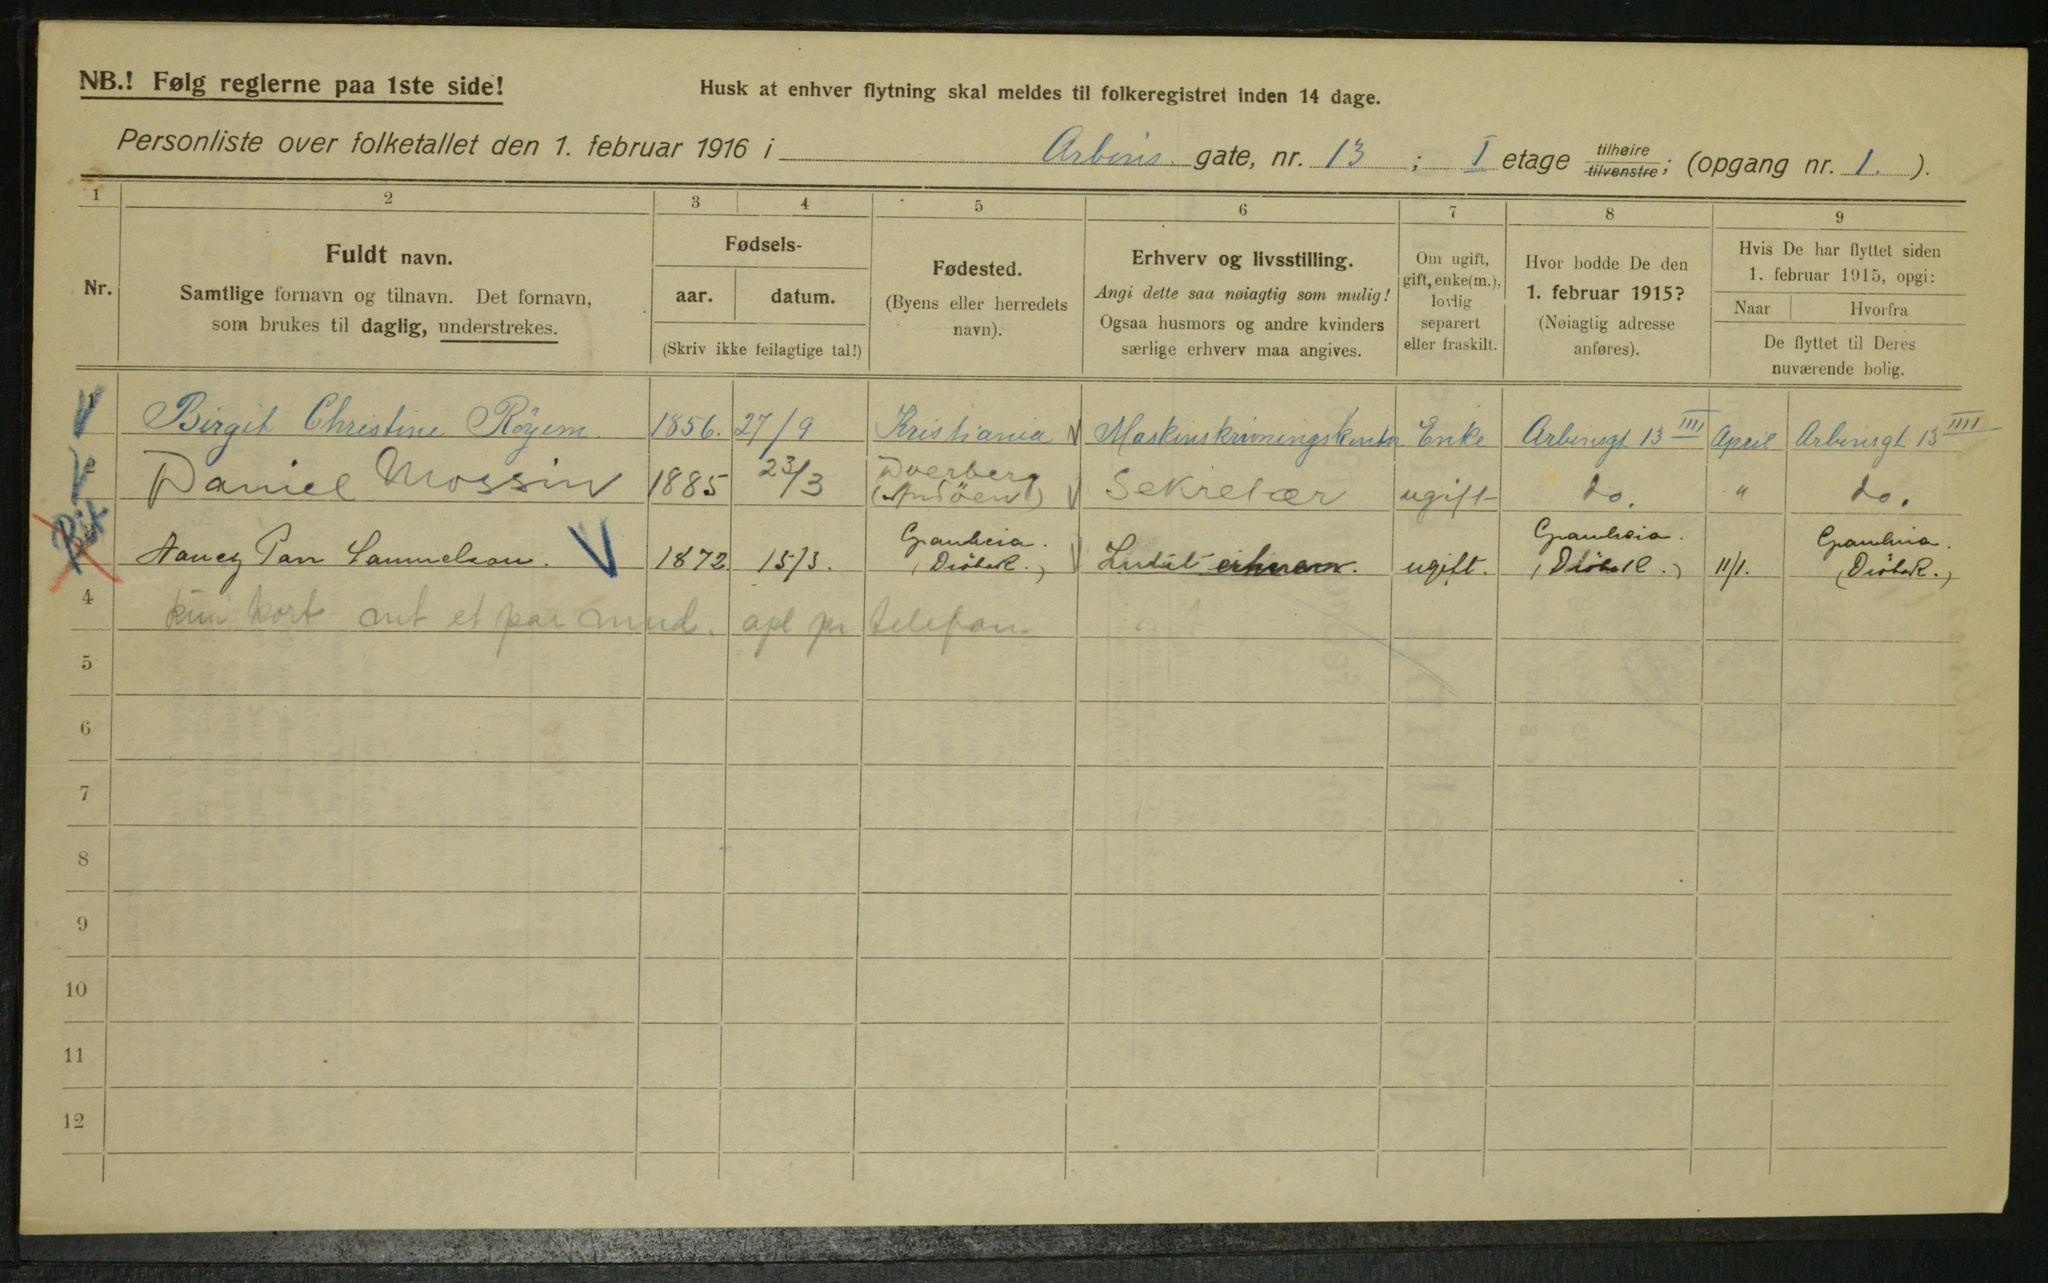 NB.! Følg reglerne paa 1ste side!
Husk at enhver flytning skal meldes til folkeregistret inden 14 dage.
Personliste over folketallet den 1. februar 1916 i Arbins gate, nr. 13 ; I etage tilhøire tilvenstre; (opgang nr. 1. ).
1 2 3 4 5 6 7 8 9
Nr.
Fuldt navn.
Samtlige fornavn og tilnavn. Det fornavn,
som brukes til daglig, understrekes.
Fødsels-
aar. datum.
(Skriv ikke feilagtige tal!)
Fødested.
(Byens eller herredets
navn).
Erhverv og livsstilling.
Angi dette saa nøiagtig som mulig!
Ogsaa husmors og andre kvinders
særlige erhverv maa angives.
Om ugift,
gift, enke(m.),
lovlig
separert
eller fraskilt.
Hvor bodde De den
1. februar 1915?
(Nøiagtig adresse
anføres).
Hvis De har flyttet siden
1. februar 1915, opgi:
Naar Hvorfra
De flyttet til Deres
nuværende bolig.
Birgit Christine Röyem 1856. 27/9 Kristiania Maskinskrivningskontor Enke Arbinsgt 13 IIII April Arbinsgt 13 IIII
Daniel Mossin 1885 23/3 Dverberg (Andöen) Sekretær ugift do. " do.
Nancy Samuelson. 1872 15/3. (Dröbak.) ugift. (Dröbak.) 11/1. (Dröbak.)
4 kun kort et par mnd. telefon
5
6
7
8
9
10
11
12